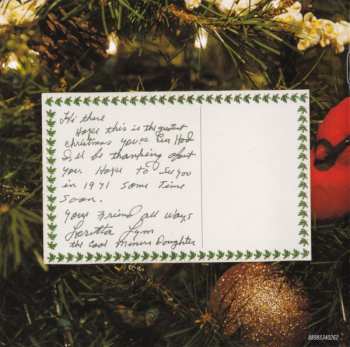 Hi there
Hope this is the greatest
christmas you've Ever Had
I'll be thanking about
you. Hope to See you
in 1971 some time
soon.
Your Friend all ways
Loretta Lynn
the Coal Miners Daughter
88985340262